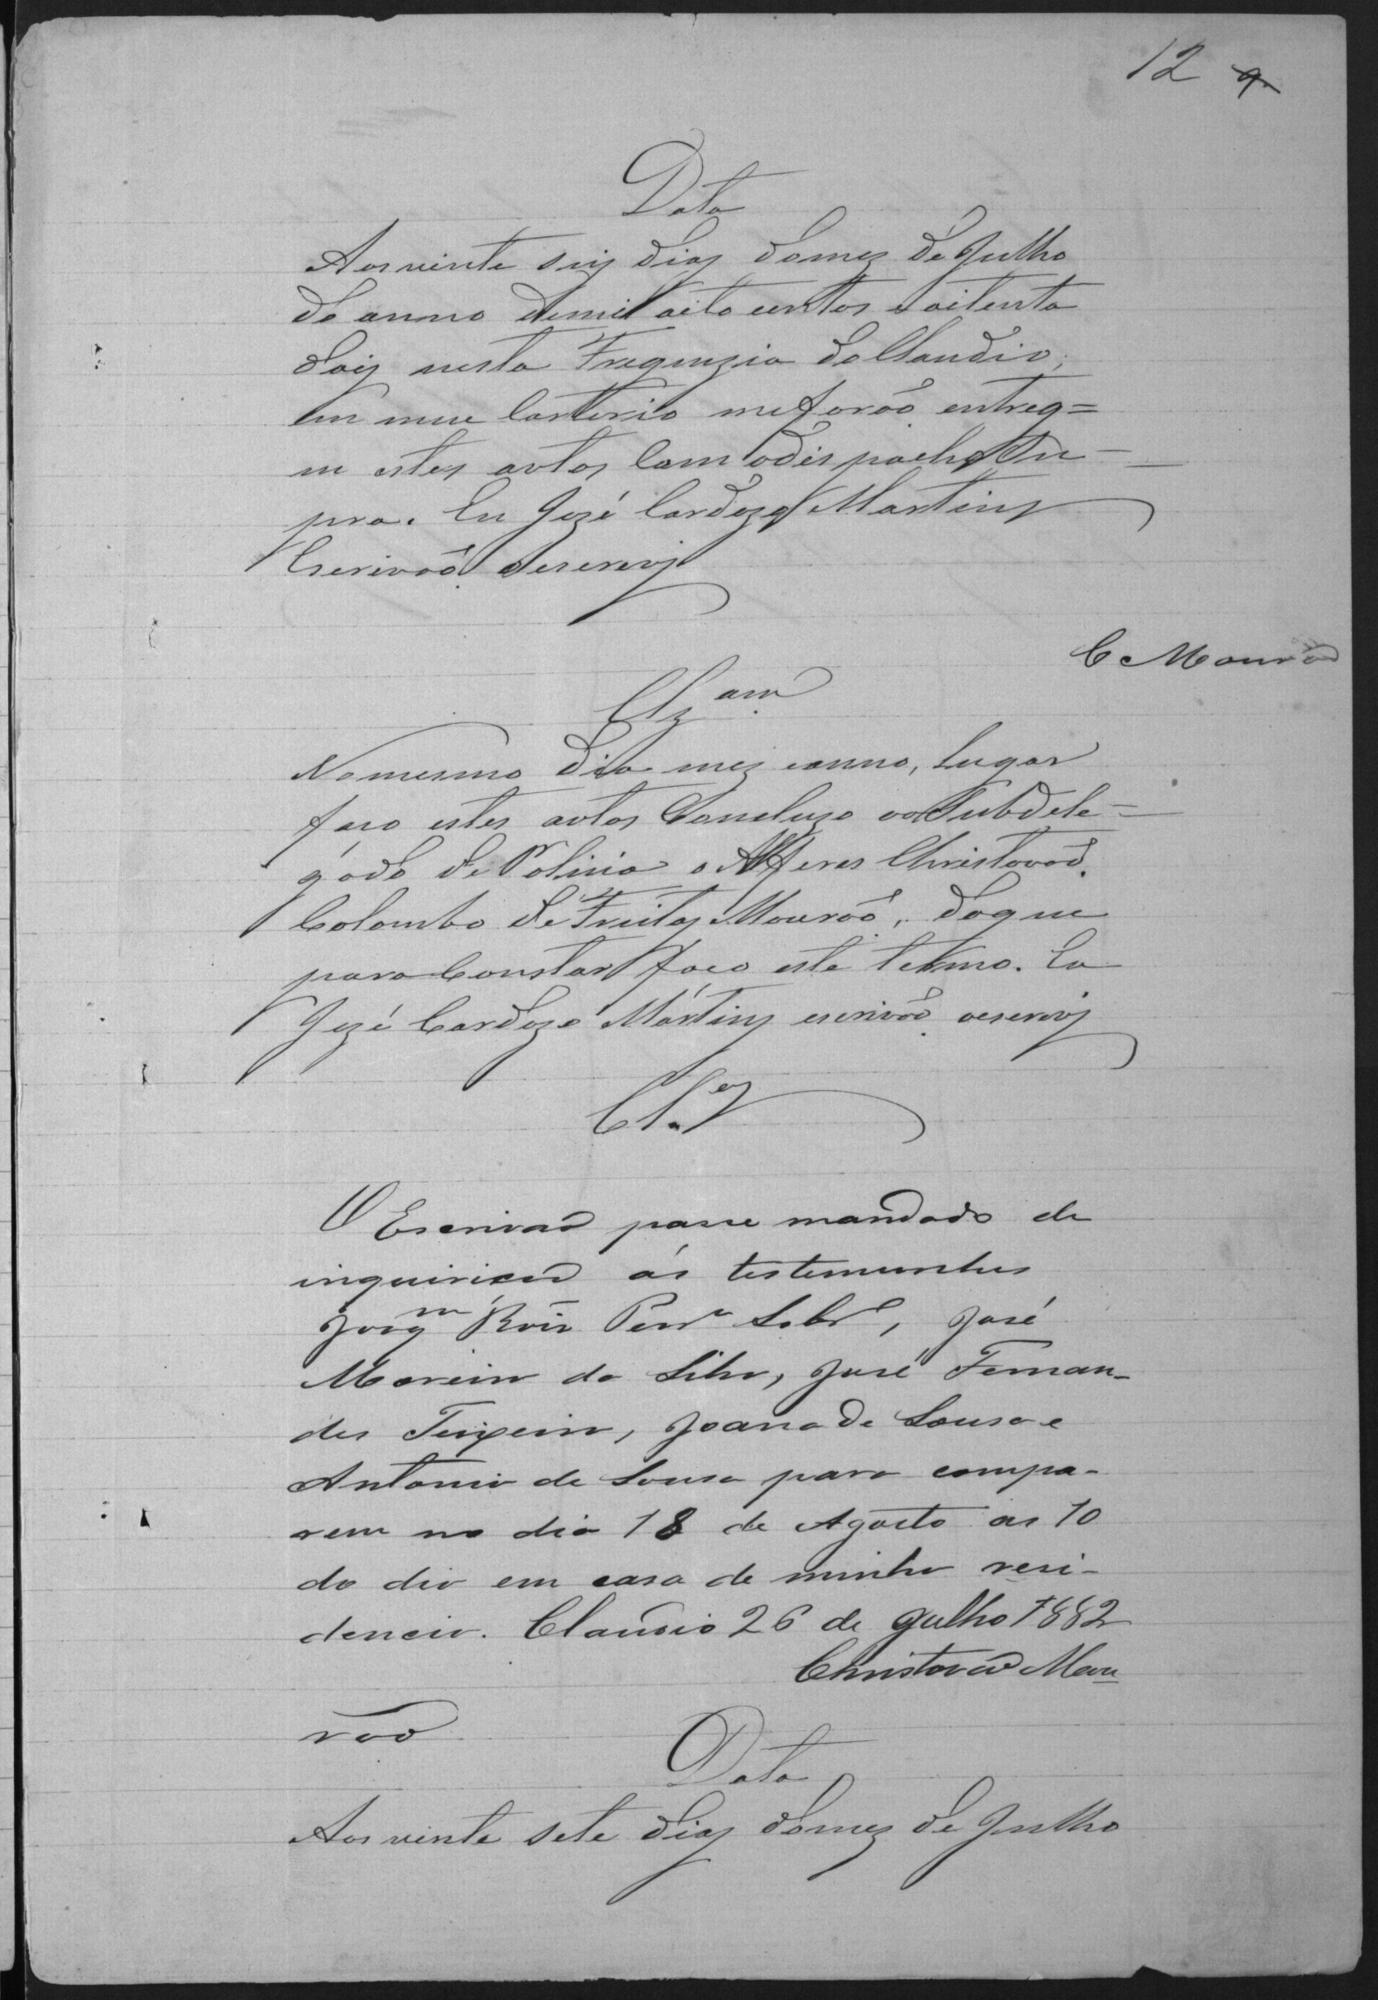 12 9
Data
Aos vinte seis dias domez de Julho
do anno demil oito centos e oitenta
dois nesta Freguezia do Claudio,
em meu Carterio me forão entreg=
ues estes autos Com odespacho Su=
pra. Eu Jozé Cardozo Martins
Escrivão oescrevi
C Mourão
Clz am
Nomesmo dia mez eanno, Lugar
faço estes autos Concluzo ao Subdele=
gado de Policia o Alferes Christovão
Colombo de Freitas Mourão, do que
para Constar faço este termo. Eu
Jozé Cardozo Martins escrivão oescrevi
Cl.os
O Escrivão passe mandado de
inquirição ás testemunhas
Joaqm Roiz Perª Sobrº, José
Moreira da Silva, José Fernan-
des Teixeira, Joana de Sousa e
Antonio de Sousa para compa-
rem no dia 18 de Agosto as 10
do dia em casa de minha resi-
dencia. Claudio 26 de Julho 1882
Christovão Mou
rão
Data
Aos vinte sete dias domez de Julho